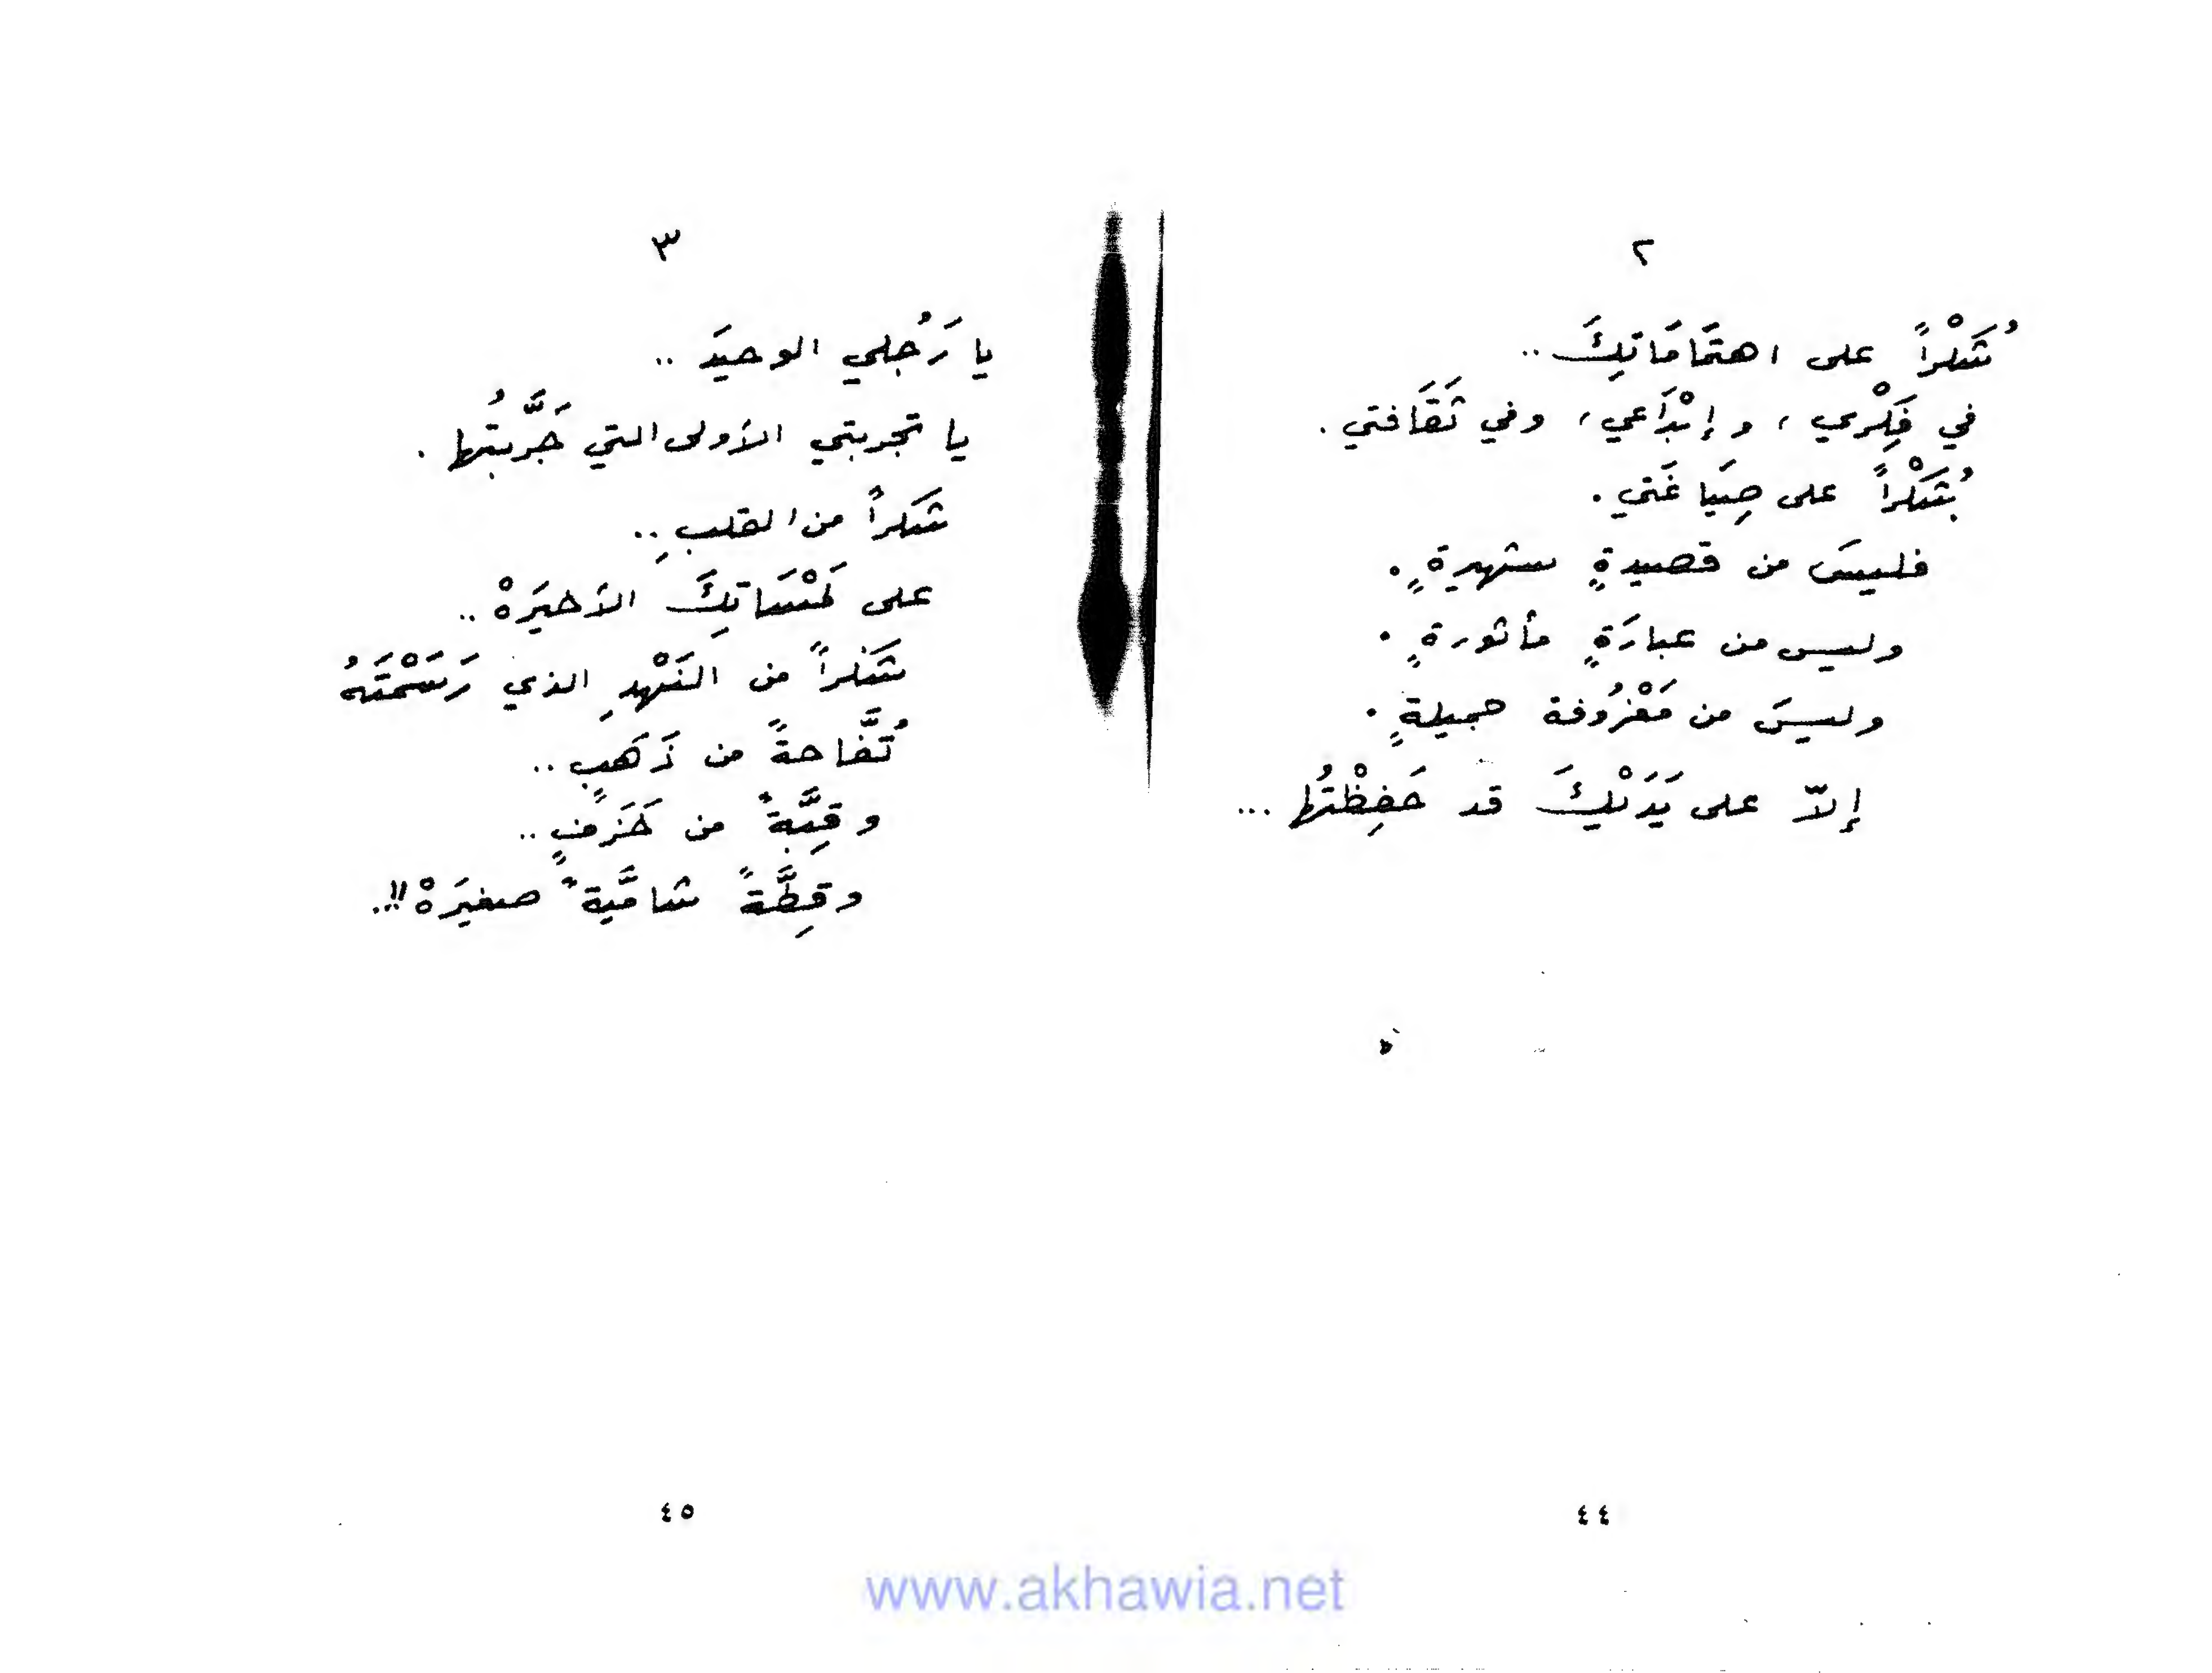 ٢
شُكْراً على اهتمَامَاتِكَ ..
في فِكْري ، وإبْدَاعي ، وفي ثَقَافتي .
شُكْراً على صِيَاغَتي .
فليسَ من قصيدةٍ شهيرةٍ .
وليس من عبارَةٍ مأثورةٍ .
وليسَ من مَعْزُوفة جميلةٍ .
إلاّ على يَدَيْكَ قد حَفِظْتُها ...
٤٤
٣
يا رَجُلي الوحيدَ ..
يا تجربتي الأولى التي جَرَّبتُها .
شكراً من القلبِ ..
على لَمْسَاتِكَ الأخيَرهْ ..
شكراً من النَهْدِ الذي رَسَمْتَهُ
تُفَّاحةً من ذَهَبٍ ..
وقِبَّةً من خَزَفٍ ..
وقِطَّةً شاميَّةً صغيَرهْ !!..
٤٥
www.akhawia.net